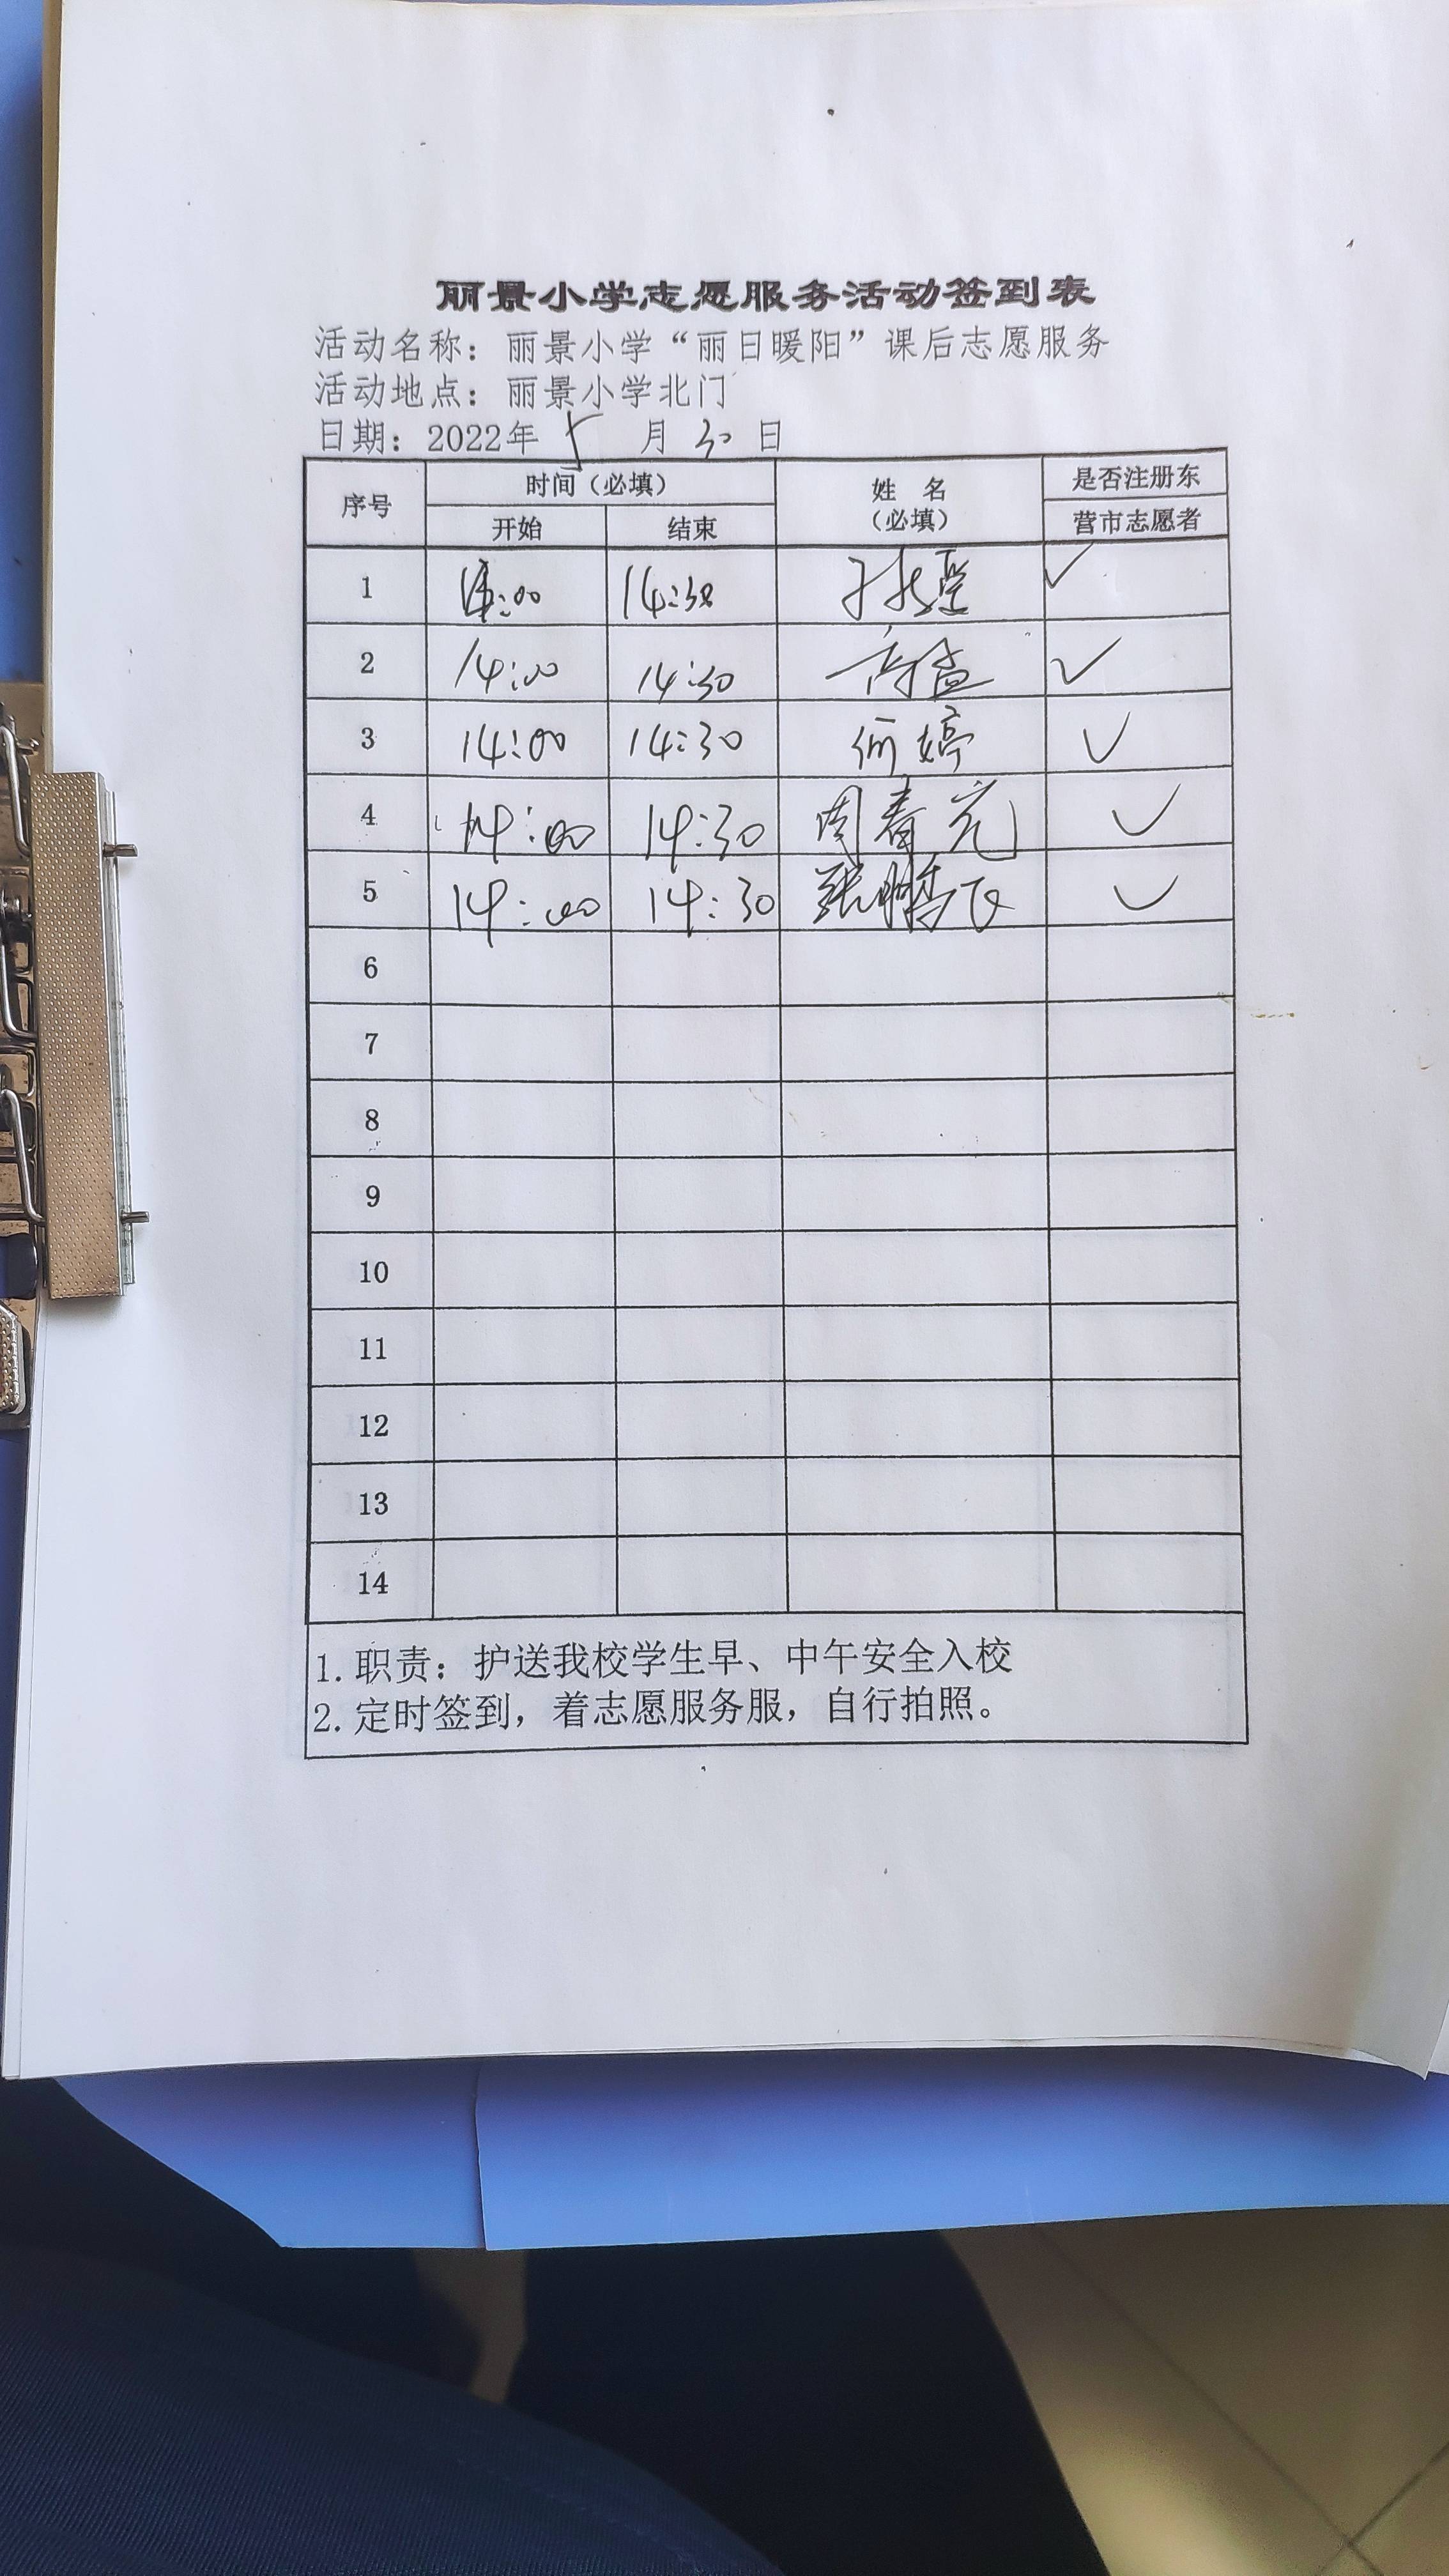 丽景小学志愿服务活动签到表
活动名称：丽景小学“丽日暖阳”课后志愿服务
活动地点：丽景小学北门
日期：2022年 5 月 30 日
序号 时间（必填） 姓 名（必填） 是否注册东营市志愿者
开始 结束
1 14:00 14:30 ✓
2 14:00 14:30 ✓
3 14:00 14:30 何婷 ✓
4 14:00 14:30 周春亮 ✓
5 14:00 14:30 张鹏飞 ✓
6
7
8
9
10
11
12
13
14
1. 职责：护送我校学生早、中午安全入校
2. 定时签到，着志愿服务服，自行拍照。